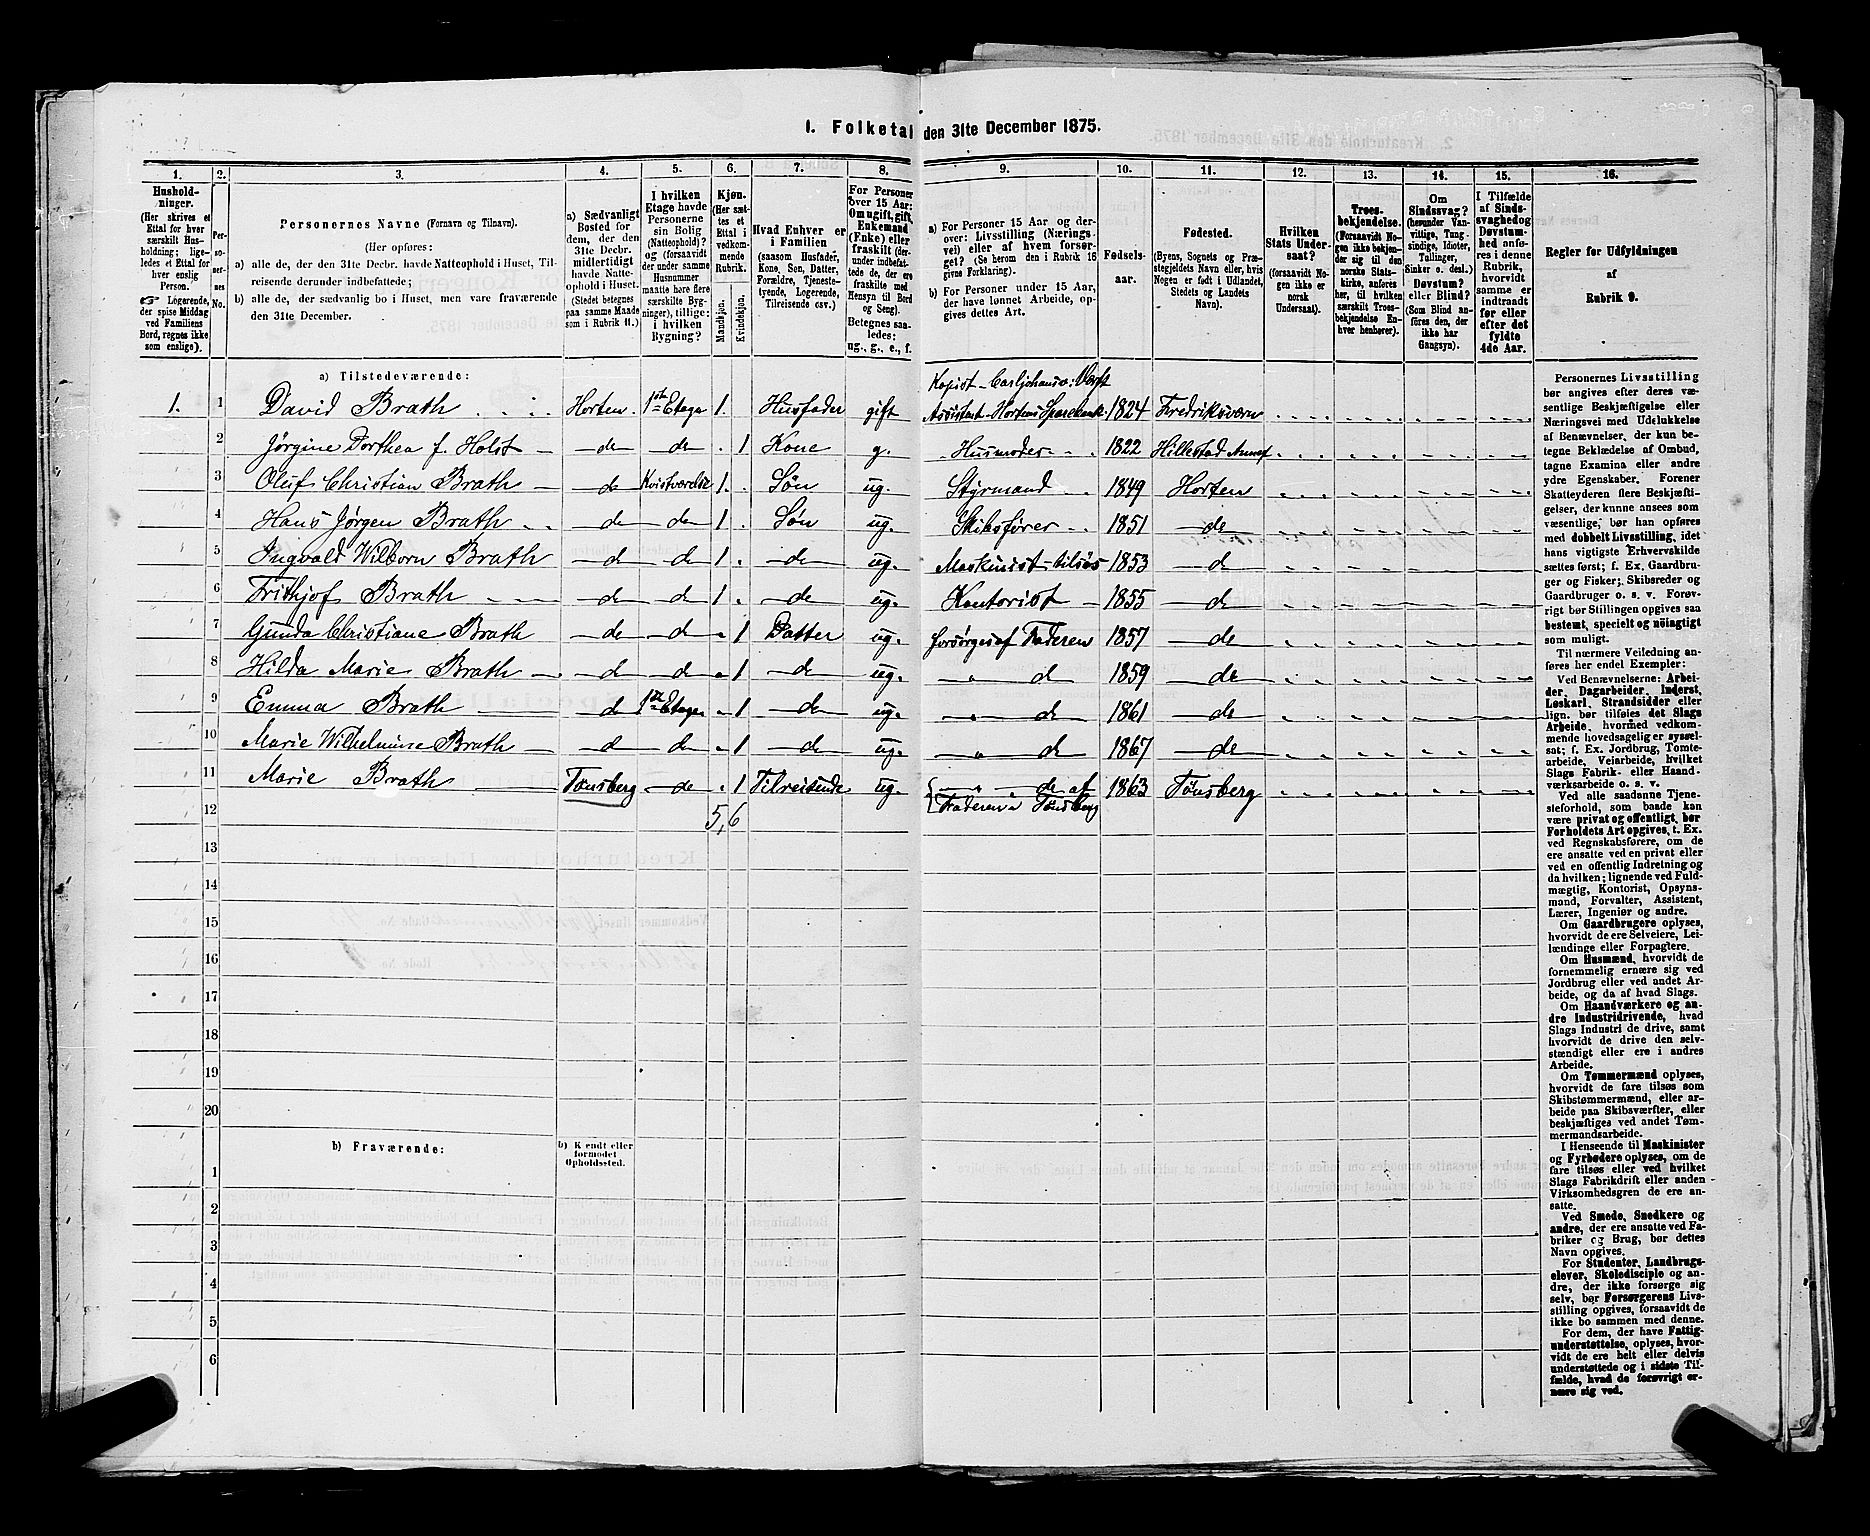 1. Folketal den 31te December 1875.
1. 2. 3. 4. 5. 6. 7. 8. 9. 10. 11. 12. 13. 14. 15. 16.
Hushold-
ninger.
(Her skrives et
Ettal for hver
særskilt Hus-
holdning; lige-
ledes et Ettal for
hver enslig
Person.
☞ Logerende,
der spise Middag
ved Familiens
Bord, regnes ikke
som enslige).
Per-
so-
ner-
nes
No.
Personernes Navne (Fornavn og Tilnavn).
(Her opføres:
a) alle de, der den 31te Decbr. havde Natteophold i Huset, Til-
reisende derunder indbefattede;
b) alle de, der sædvanlig bo i Huset, men vare fraværende
den 31te December.
a) Sædvanligt
Bosted for
dem, der den
31te Decbr.
midlertidigt
havde Natte-
ophold i Huset.
(Stedet betegnes
paa samme Maade
som i Rubrik 11.)
I hvilken
Etage havde
Personerne
sin Bolig
(Natteophold)?
og (forsaavidt
der under samme
Husnummer
maatte høre flere
særskilte Byg-
ninger), tillige:
i hvilken
Bygning?
Kjøn.
(Her sæt-
tes et
Ettal i
vedkom-
mende
Rubrik.
Mandkjøn.
Kvindekjøn.
Hvad Enhver er
i Familien
(saasom Husfader,
Kone, Søn, Datter,
Forældre, Tjeneste-
tyende, Logerende,
Tilreisende osv.).
For Personer
over 15 Aar:
Om ugift, gift,
Enkemand
(Enke) eller
fraskilt (der-
under indbefat-
tede de, der ere
fraskilte med
Hensyn til Bord
og Seng).
Betegnes saa-
ledes:
ug., g., e., f.
a) For Personer 15 Aar og der-
over: Livsstilling (Nærings-
vei) eller af hvem forsør-
get? (Se herom den i Rubrik 16
givne Forklaring).
b) For Personer under 15 Aar,
der have lønnet Arbeide, op-
gives dettes Art.
Fødsels-
aar.
Fødested.
(Byens, Sognets og Præ-
stegjeldets Navn eller, hvis
Nogen er født i Udlandet,
Stedets og Landets
Navn).
Hvilken
Stats Under-
saat?
(forsaavidt No-
gen ikke er
norsk
Undersaat).
Troes-
bekjendelse.
(Forsaavidt No-
gen ikke bekjen-
der sig til den
norske Stats-
kirke, anføres
her, til hvilken
særskilt Troes-
bekjendelse En-
hver henhører).
Om
Sindssvag?
(herunder Van-
vittige, Tung-
sindige, Idioter,
Tullinger,
Sinker o. desl.)
Døvstum?
eller Blind?
(Som Blind an-
føres den, der
ikke har
Gangsyn).
I Tilfælde
af Sinds-
svaghed og
Døvstum-
hed anfø-
res i denne
Rubrik,
hvorvidt
samme er
indtraadt
før eller
efter det
fyldte
4de Aar.
Regler for Udfyldningen
af
Rubrik 9.
a) Tilstedeværende:
Kopist - Carljohansv: Værft
1. 1 David Brath Horten. 1ste Etage 1. Husfader gift Assistent - Hortens Sparebank 1824 Fredriksværn
2 Jørgine Dorthea f. Holst — de — de — 1 Kone g. Husmoder 1822 Hillestad Annex
3 Oluf Christian Brath — de Kvistværelse 1. Søn ug. Styrmand 1849 Horten
4 Hans Jørgen Brath — de — de 1. Søn ug. Skibsfører 1851 — de
5 Ingvald Wilborn Brath — de — de 1. — de ug. Maskinist - tilsøs 1853 — d
6 Frithjof Brath — de — de 1. — de ug. Kontorist — 1855 — de
7 Gunda Christiane Brath — de — d 1 Datter ug. forsørges af Faderen 1857 — de
8 Hilda Marie Brath — de — de 1 — de ug. — " — d 1859 — de
9 Emma Brath — de 1ste Etage 1 — de ug. — " — de 1861 — de
10 Marie Wilhelmine Brath — d — de 1 — de ug. — " — de 1867 — de
11 Marie Brath Tønsberg — de 1 Tilreisende ug. — " — de af 1863 Tønsberg
Faderen i Tønsberg
12 5, 6
13
14
15
16
17
18
19
20
b) Fraværende:
b) Kjendt eller
formodet
Opholdssted.
1
2
3
4
5
6
Personernes Livsstilling
bør angives efter deres væ-
sentlige Beskjæftigelse eller
Næringsvei med Udelukkelse
af Benævnelser, der kun be-
tegne Beklædelse af Ombud,
tagne Examina eller andre
ydre Egenskaber. Forener
Skatteyderen flere Beskjæfti-
gelser, der kunne ansees som
væsentlige, bør han opføres
med dobbelt Livsstilling, idet
hans vigtigste Erhvervskilde
sættes først; f. Ex. Gaardbru-
ger og Fisker; Skibsreder og
Gaardbruger o. s. v. Forøv-
rigt bør Stillingen opgives saa
bestemt, specielt og nøiagtigt
som muligt.
Til nærmere Veiledning an-
føres her endel Exempler:
Ved Benævnelserne: Arbei-
der, Dagarbeider, Inderst,
Løskarl, Strandsidder eller
lign. bør tilføies det Slags
Arbeide, hvormed vedkom-
mende hovedsagelig er syssel-
sat; f. Ex. Jordbrug, Tomte-
arbeide, Veiarbeide, hvilket
Slags Fabrik- eller Haand-
værksarbeide o. s. v.
Ved alle saadanne Tjene-
steforhold, som baade kan
være privat og offentligt, bør
Forholdets Art opgives, t. Ex.
ved Regnskabsførere, om de
ere ansatte ved en privat eller
ved en offentlig Indretning og
da hvilken; lignende ved Fuld-
mægtig, Kontorist, Opsyns-
mand, Forvalter, Assistent,
Lærer, Ingeniør og andre.
Om Gaardbrugere oplyses,
hvorvidt de ere Selveiere, Lei-
lændinge eller Forpagtere.
Om Husmænd, hvorvidt de
fornemmelig ernære sig ved
Jordbrug eller ved andet Ar-
beide, og da af hvad Slags.
Om Haandværkere og an-
dre Industridrivende, hvad
Slags Industri de drive, samt
hvorvidt de drive den selv-
stændigt eller ere i andres
Arbeide.
Om Tømmermænd oplyses,
hvorvidt de fare tilsøs som
Skibstømmermænd, eller ar-
beide paa Skibsværfter, eller
beskjæftiges ved andet Tøm-
mermandsarbeide.
I Henseende til Maskinister
og Fyrbødere oplyses, om de
fare tilsøs eller ved hvilket
Slags Fabrikdrift eller anden
Virksomhedsgren de ere an-
satte.
Ved Smede, Snedkere og
andre, der ere ansatte ved Fa-
briker og Brug, bør dettes
Navn opgives.
For Studenter, Landbrugs-
elever, Skoledisciple og an-
dre, der ikke forsørge sig
selv, bør Forsørgerens Livs-
stilling opgives, forsaavidt de
ikke bo sammen med denne.
For dem, der have Fattig-
understøttelse, oplyses, hvor-
vidt de ere helt eller delvis
understøttede og i sidste Til-
fælde, hvad de forøvrigt er-
nære sig ved.